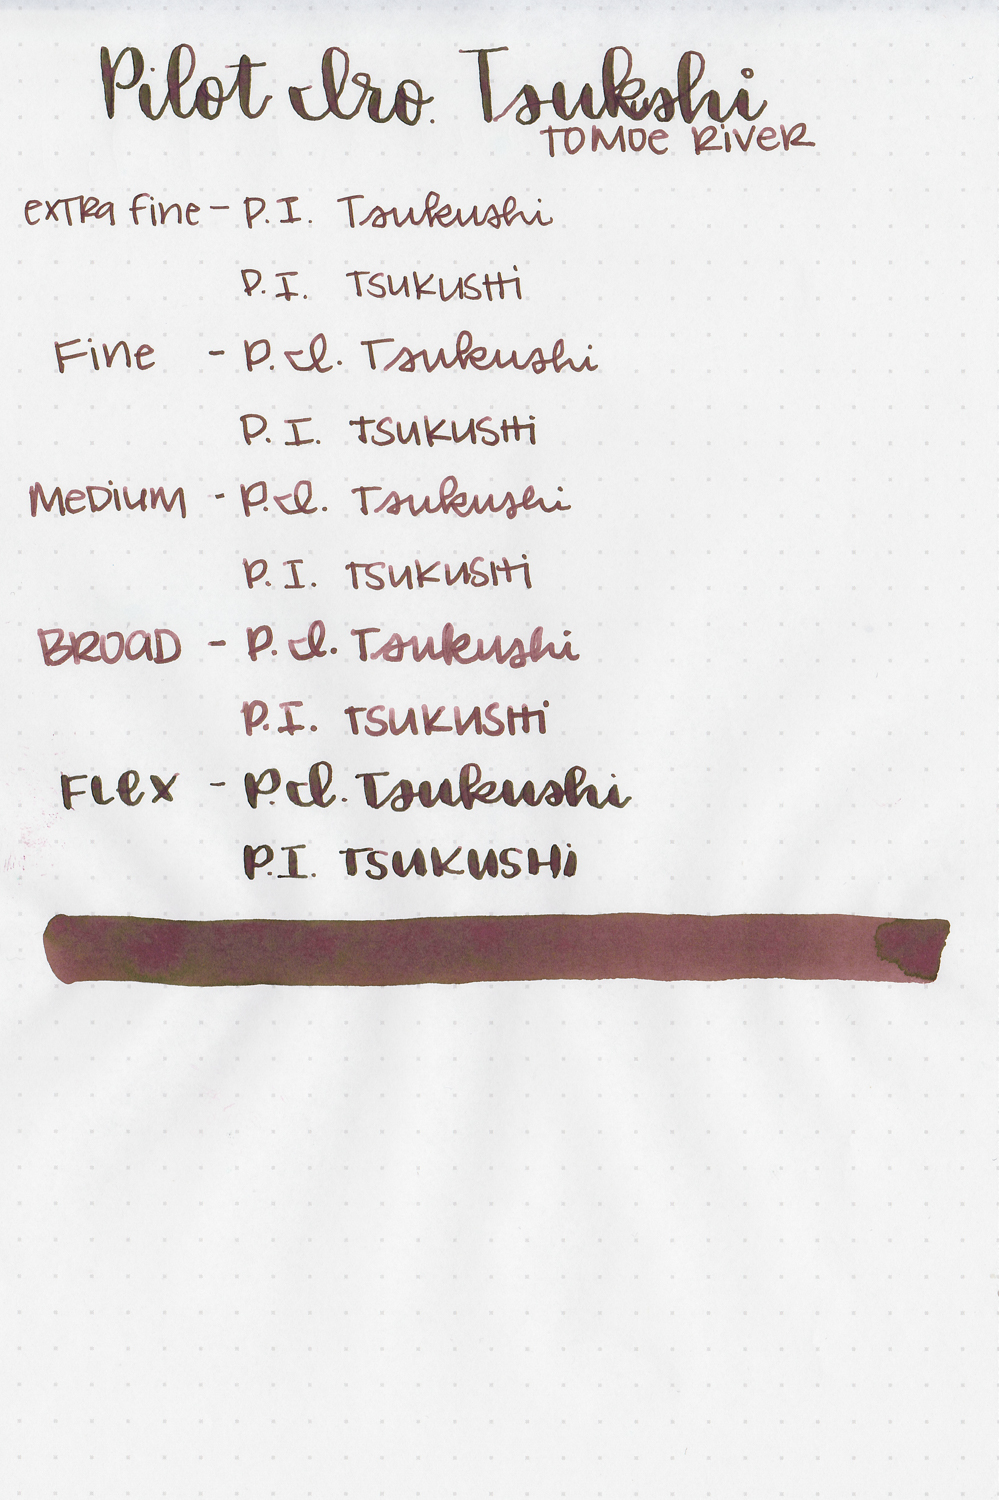 Pilot Iro. Tsukshi
Tomoe River
extra fine - P.I. Tsukushi
P.I. TSUKUSHi
Fine - P.I. Tsukushi
P.I. TSUKUSHi
Medium - P.I. Tsukushi
P.I. TSUKUSHi
BROAD - P.I. Tsukushi
P.I. TSUKUSHi
Flex - P.I. Tsukushi
P.I. TSUKUSHi